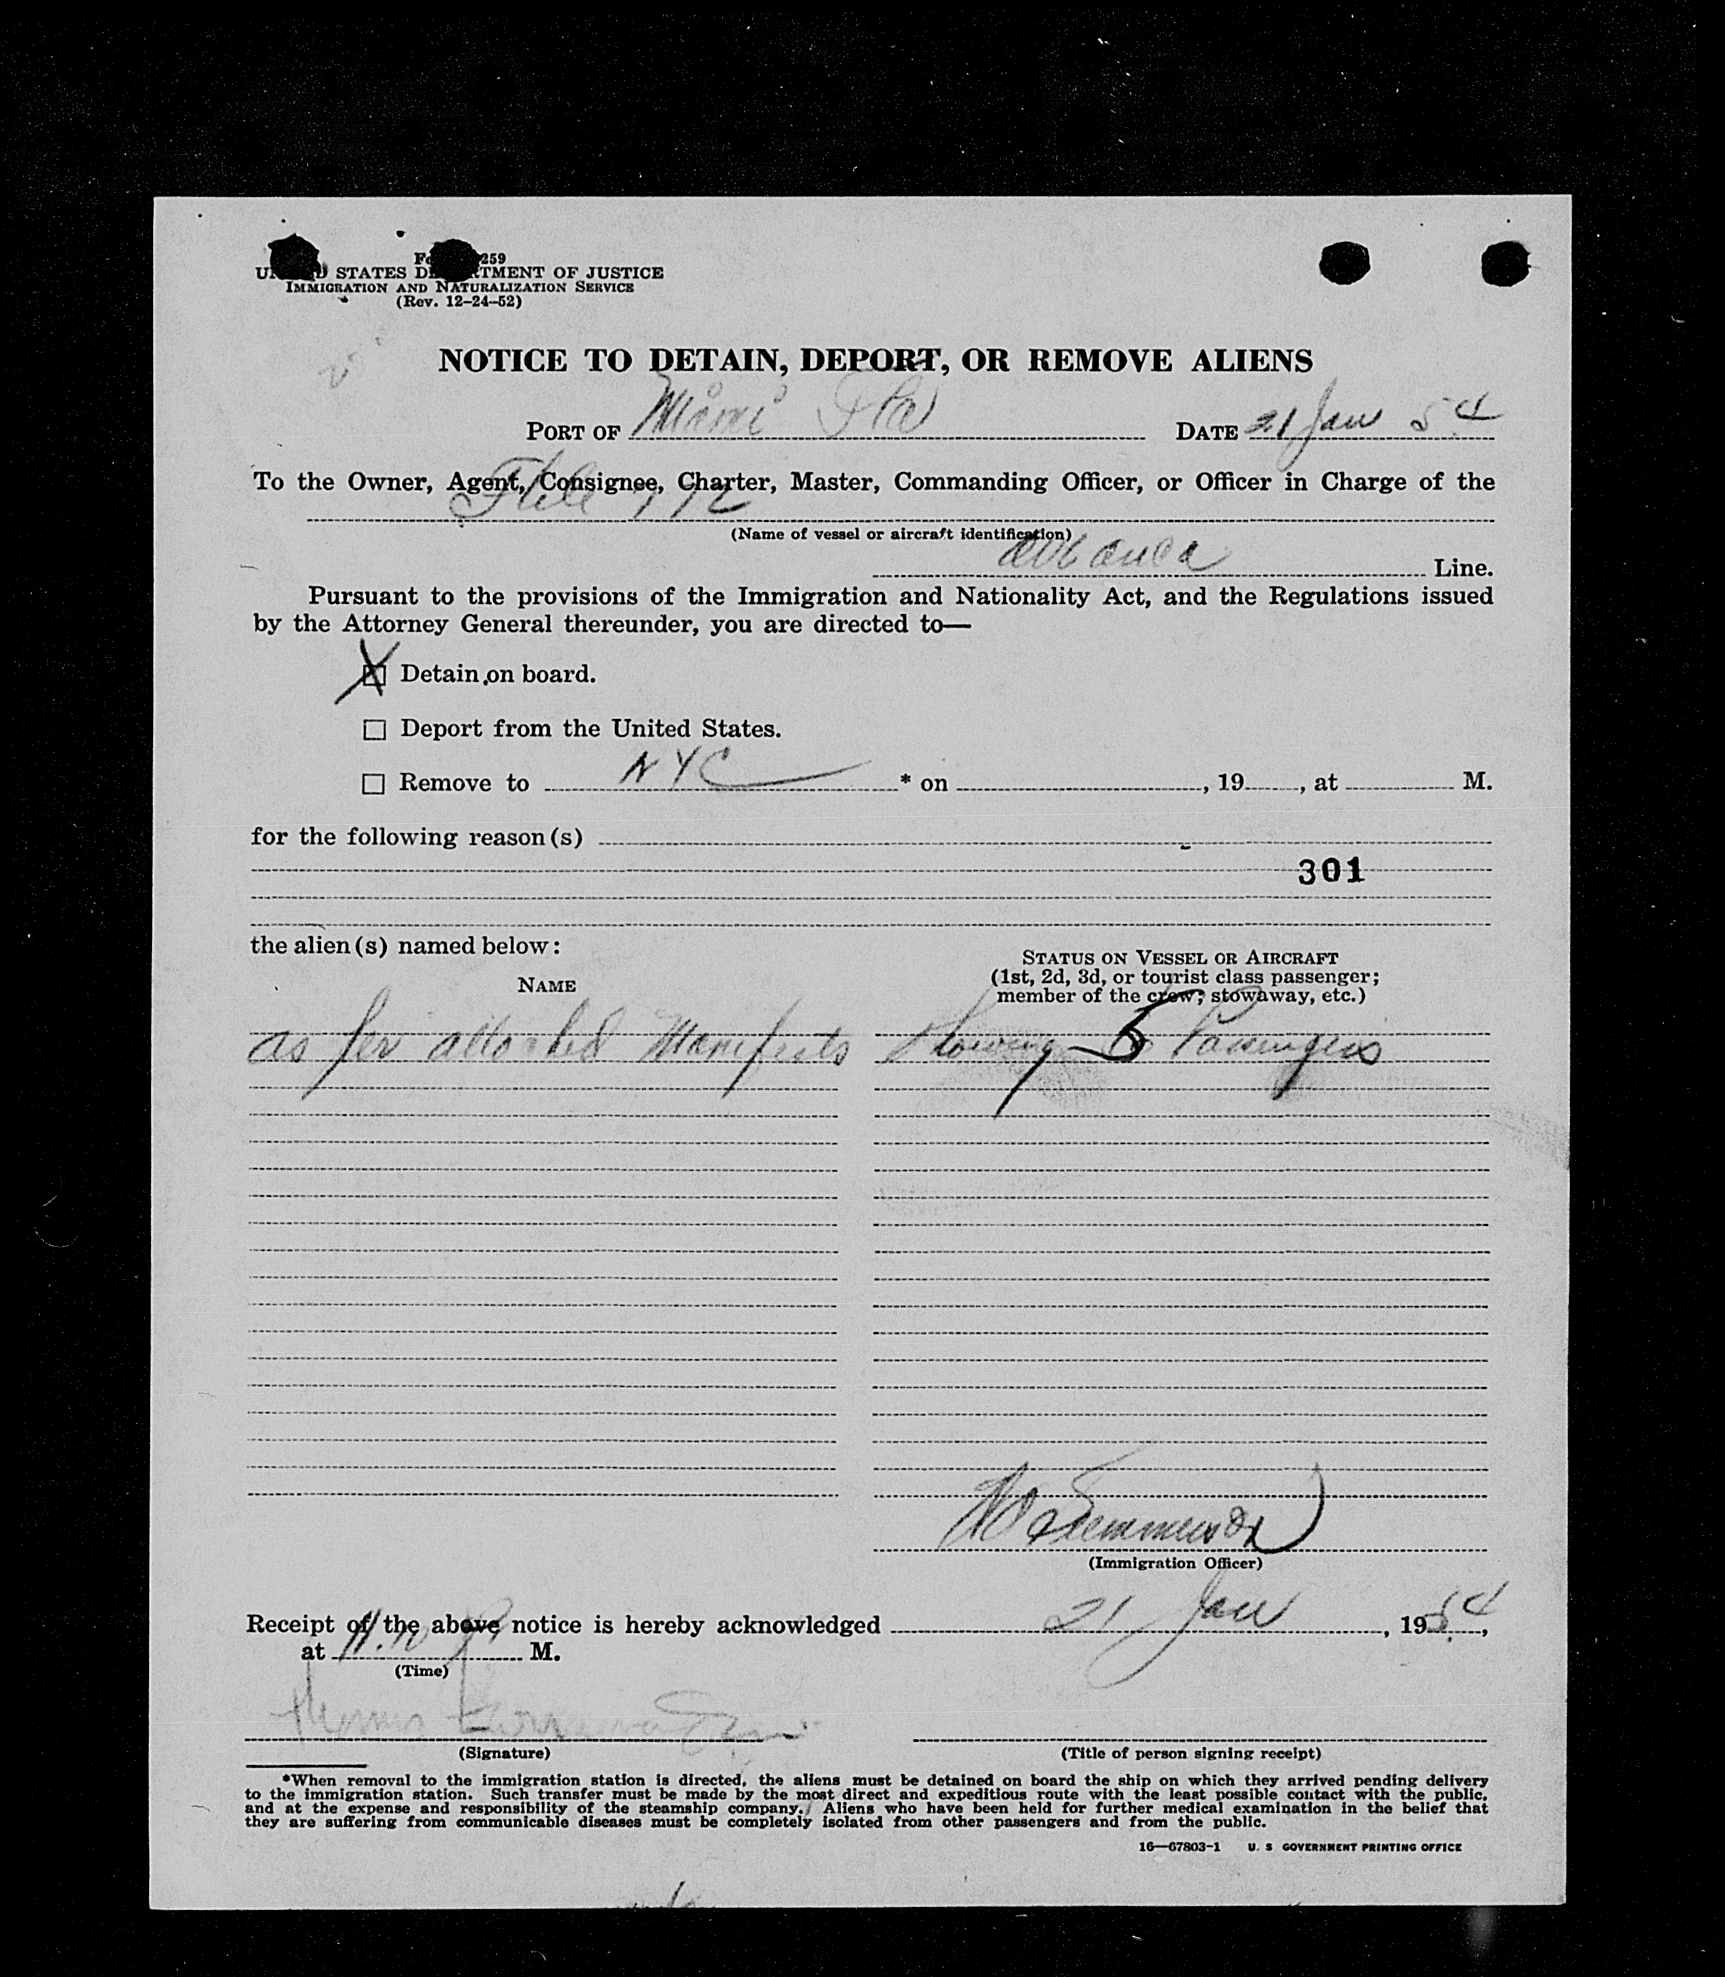 259
STATES TMENT OF JUSTICE
IMMIGRATION AND NATURALIZATION SERVICE
(Rev. 12-24-52)
NOTICE TO DETAIN, DEPORT, OR REMOVE ALIENS
PORT OF Miami Fla DATE 21 Jan 54
To the Owner, Agent, Consignee, Charter, Master, Commanding Officer, or Officer in Charge of the
(Name of vessel or aircraft identification)
Line.
Pursuant to the provisions of the Immigration and Nationality Act, and the Regulations issued
by the Attorney General thereunder, you are directed to—
X Detain on board.
Deport from the United States.
Remove to NYC * on , 19 , at M.
for the following reason(s)
301
the alien(s) named below:
NAME
STATUS ON VESSEL OR AIRCRAFT
(1st, 2d, 3d, or tourist class passenger;
member of the crew; stowaway, etc.)
as per attached Manifests showing 5 Passengers
(Immigration Officer)
Receipt of the above notice is hereby acknowledged 21 Jan , 1954,
at 11:10 P M.
(Time)
(Signature)
(Title of person signing receipt)
*When removal to the immigration station is directed, the aliens must be detained on board the ship on which they arrived pending delivery
to the immigration station. Such transfer must be made by the most direct and expeditious route with the least possible contact with the public,
and at the expense and responsibility of the steamship company. Aliens who have been held for further medical examination in the belief that
they are suffering from communicable diseases must be completely isolated from other passengers and from the public.
16—67803-1 U. S GOVERNMENT PRINTING OFFICE